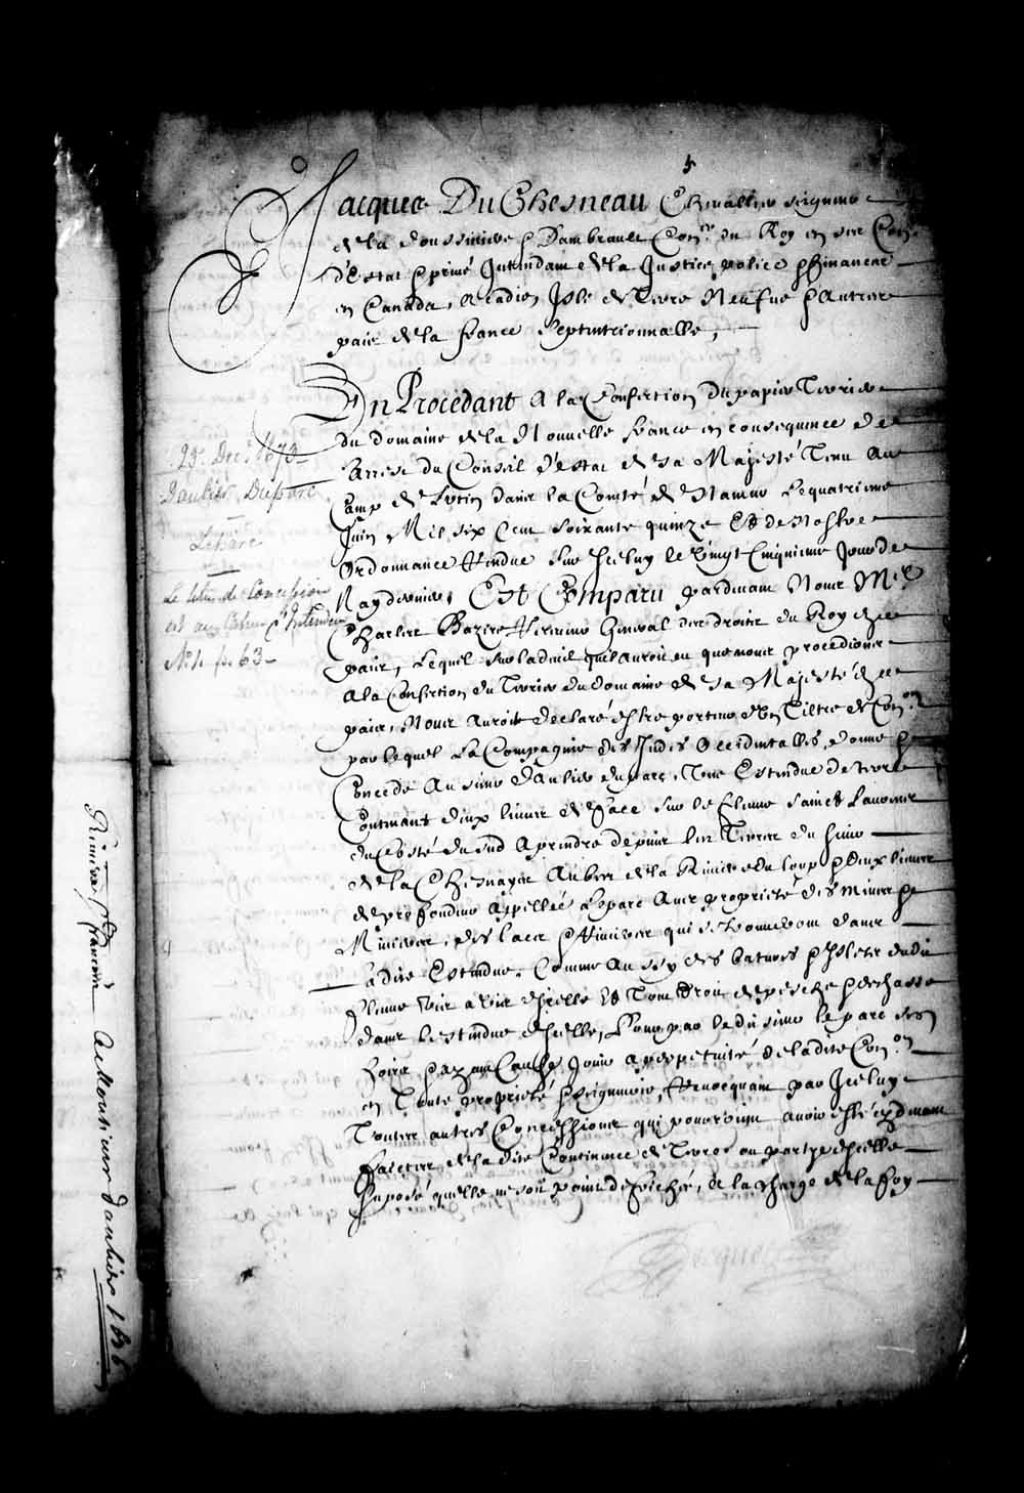 Jacques DuChesneau Chevallier seigneur
de la doussiniere & Dambrault Con.er du Roy en ses Con.
d'Estat & privé Intendant de la Justice police & finances
en Canada, Acadie, Isle de Terre Neufve & Autres
pais de la france Septentrionnalle,
En Procedant A la Confection du papier Terrier
du domaine de la Nouvelle france en consequence de
l'arrest du Conseil d'Estat de sa Majesté Tenu au
Camp de Lutin dans la Comté de Namur le quatrieme
Juin Mil six Cent soixante quinze Et de Nostre
Ordonnance Rendue Sur Iceluy le Vingt Cinquieme Jour de
May dernier, Est Comparu pardevant Nous M.e
Charles Bazire Receveur General des droits du Roy de ce
pais, Lequel sur ladvis quil auroit eu que nous procedions
A la Confection du Terrier du domaine de sa Majesté de ce
pais, Nous Auroit declaré estre porteur d'un Tiltre de Con.on
par lequel La Compagnie des Indes Occidentalles, donne &
Concede Au sieur D'Aulier du parc, Une Estendue de terre
Contenant deux lieues de face sur le fleuve Sainct Laurens
du Costé du sud A prendre depuis les Terres du sieur
de la Chesnaye Aubert de la Riviere du loup & deux lieues
de profondeur Appellée Leparc Avec proprieté des mines &
Minieres, des lacs & Rivieres qui se trouveront dans
Ladite Estendue, Comme Aussy des batures & Islets dudit
fleuve vis a vis dicelle Et Tout Droit de pesche & de chasse
dans lestendue dicelle, Pour par ledit sieur le parc ses
hoirs & ayans Cause, Jouir a perpetuité de ladite Con.on
en Toute proprieté & seigneurie, Revocquant par Iceluy
Toutes autres Concessions qui pourroient avoir esté cy devant
faictes, de la dite Continence de Terres ou partye dicelle
suposé quelle ne soit point defrichée, de la charge de la foy
29. Dec. 1670
Daulier Duparc
Leparc
Le titre de Concession
est au Cahier d'Intendance
No 1. fo. 63
Riviere St francois A Monsieur daulier 1676